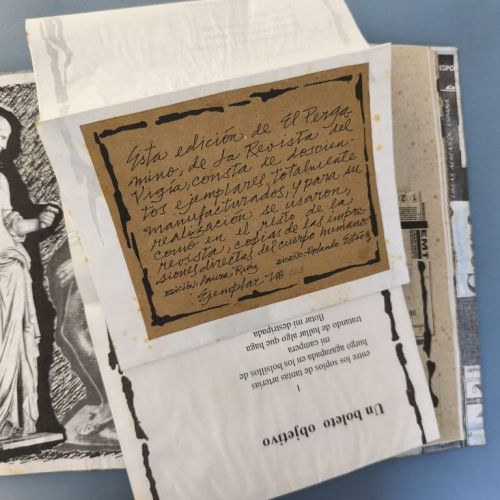 Esta edición, de El Perga
mino, de La Revista del
Vigía, consta de doscien
tos ejemplares, totalmente
manufacturados, y para su
realización se usaron,
como en el resto de la
revista, copias de las impre
siones directas del cuerpo humano.
EDICIÓN: Laura Ruiz DISEÑO: Rolando Estévez
Ejemplar
Un boleto objetivo
1
entre los soplos de tantas arterias
hurgo agazapada en los bolsillos de
mi campera
tratando de hallar algo que haga
flotar mi destripada
LINEAS AEREAS DE ESPAÑA